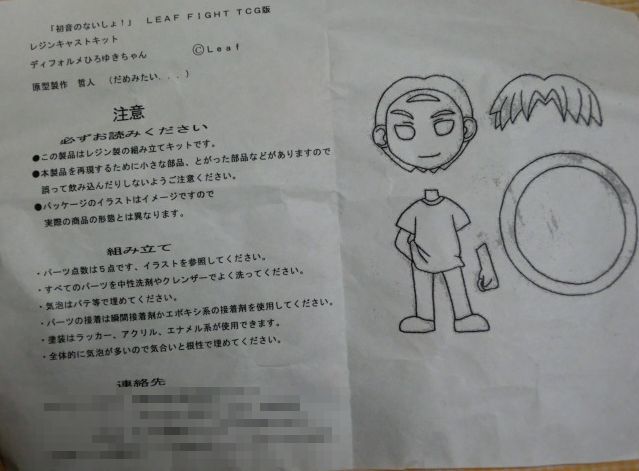 「初音のないしょ！」　ＬＥＡＦ ＦＩＧＨＴ ＴＣＧ版
レジンキャストキット
ディフォルメひろゆきちゃん　　　Ⓒ Ｌｅａｆ
原型製作　哲人　（だめみたい．．．）
注意
必ずお読みください
●この製品はレジン製の組み立てキットです。
●本製品を再現するために小さな部品、とがった部品などがありますので
誤って飲み込んだりしないようご注意ください。
●パッケージのイラストはイメージですので
実際の商品の形態とは異なります。
組み立て
・パーツ点数は５点です、イラストを参照してください。
・すべてのパーツを中性洗剤やクレンザーでよく洗ってください。
・気泡はパテ等で埋めてください。
・パーツの接着は瞬間接着剤かエポキシ系の接着剤を使用してください。
・塗装はラッカー、アクリル、エナメル系が使用できます。
・全体的に気泡が多いので気合いと根性で埋めてください。
連絡先